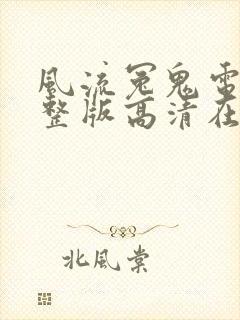 風流冤鬼電
整版高清在
北風棠